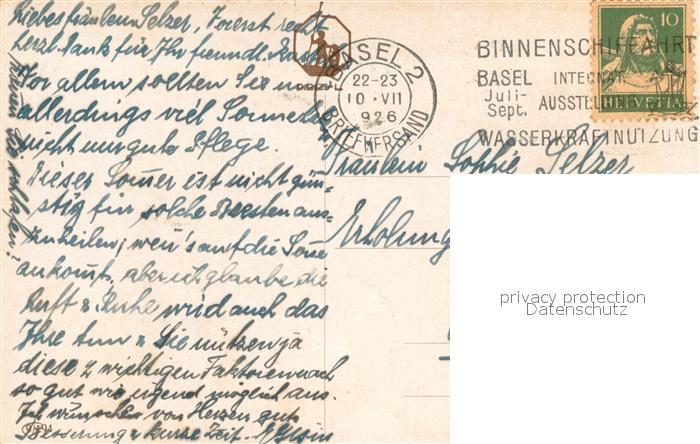 Liebes Fräulein Selzer, Zuerst recht
herzl. Dank für Ihr freundl.
Vor allem sollten Sie
allerdings viel Sonne
nicht nur gute Pflege.
Dieser Sommer ist nicht gün-
stig für solche Beesten aus-
zuheilen, wen's auf die Sonne
ankomt, aber ich glaube die
Luft & Ruhe wird auch das
Ihre tun & Sie nützen ja
diese 2 wichtigen Faktoren auch
so gut wie irgend möglich aus.
Ich wünsche von Herzen gute
Besserung & kurze Zeit.
BASEL 2
22-23
10.VII
1926
BRIEFVERSAND
BINNENSCHIFFAHRT
BASEL INTERNAT.
Juli-
Sept. AUSSTELL
WASSERKRAFTNUTZUNG
10
HELVETIA
Fräulein Sophie Selzer
Erholung
privacy protection
Datenschutz